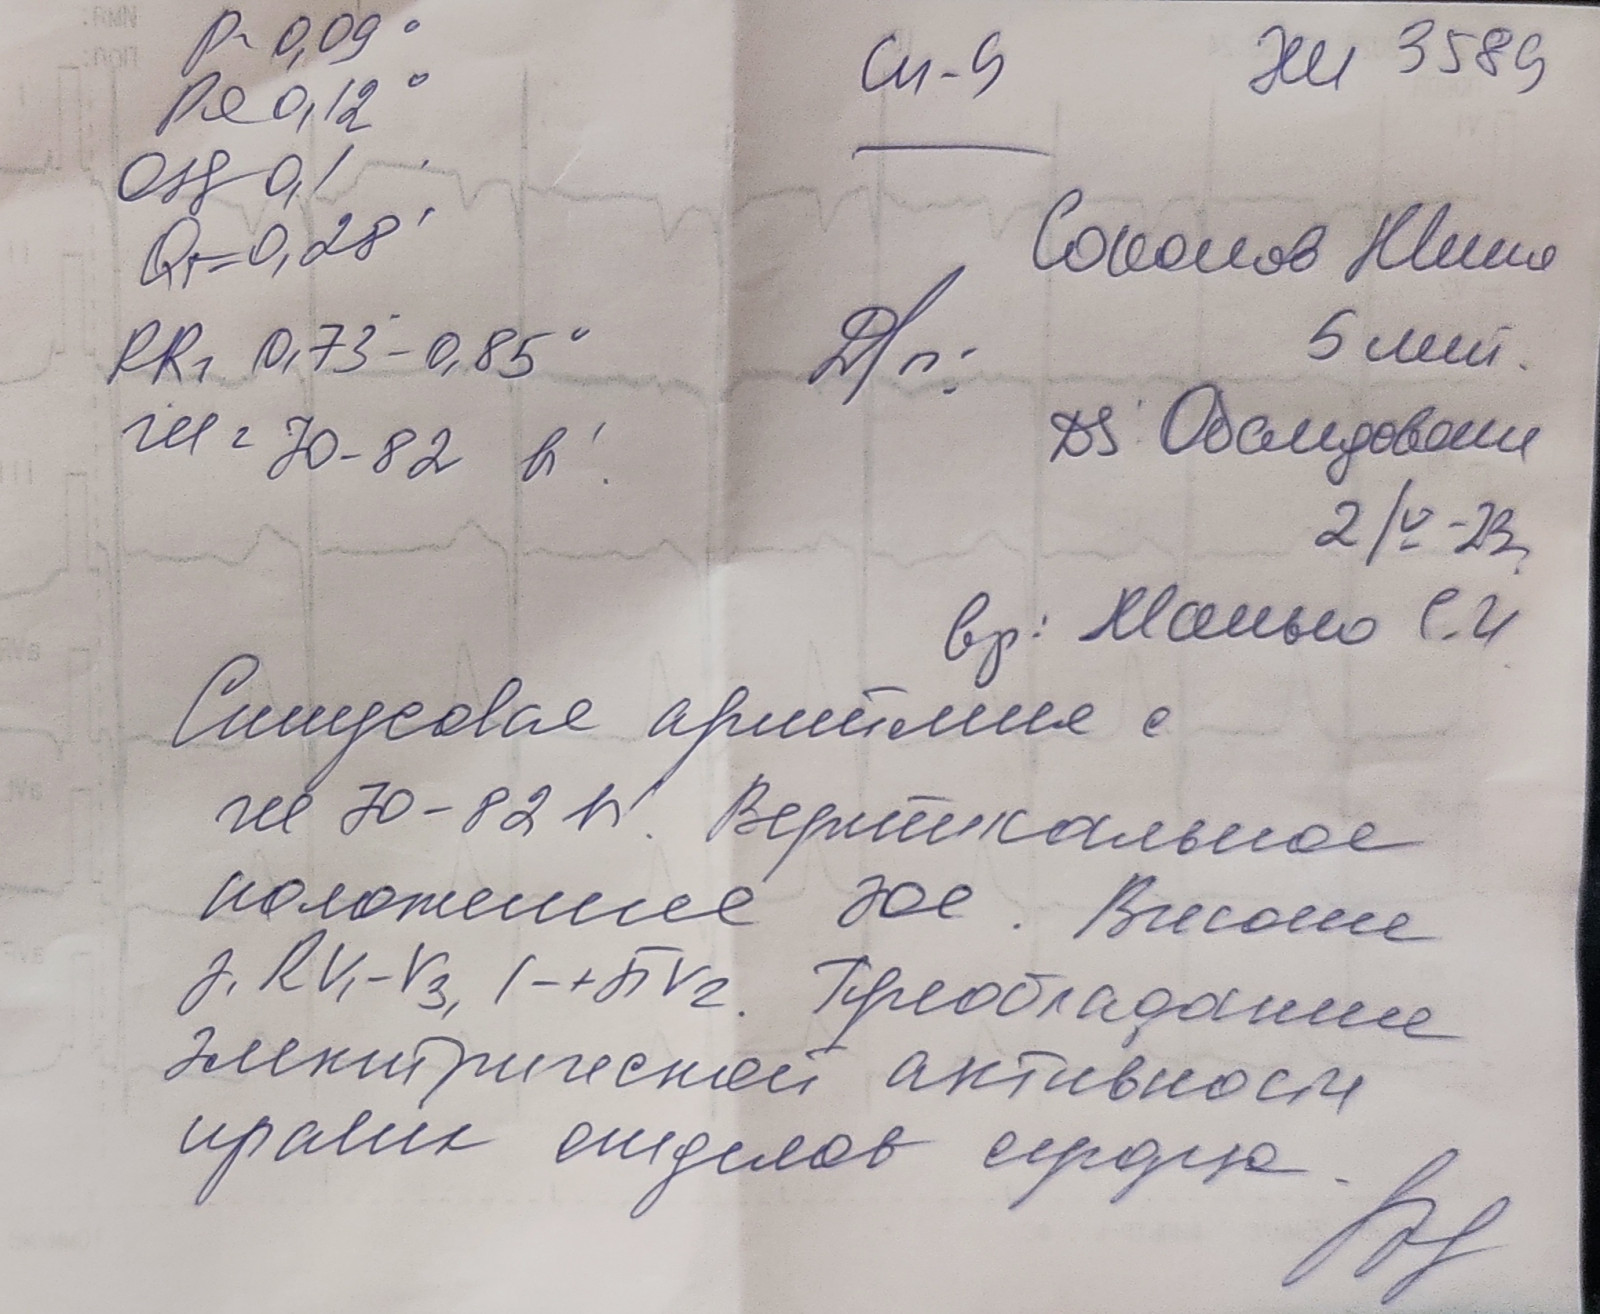 P- 0,09"
PQ 0,12"
QRS 0,1"
QT=0,28"
RR= 0,73-0,85"
ЧСС= 70-82 в'.
См-9 ЖИ 3589
Соколов
Д/п: 5 лет.
DS: Обследование
2/V-23
вр: Манько С.И
Синусовая аритмия с
чсс 70-82 в'. Вертикальное
положение ЭОС. Высокие
з. RV1-V3, (-+)TV2. Преобладание
электрической активности
правых отделов сердца.